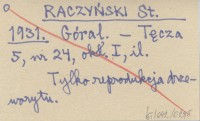 RACZYŃSKI St.
1931. Góral. – Tęcza
5, nr 24, okł. I, il.
Tylko reprodukcja drze-
worytu.